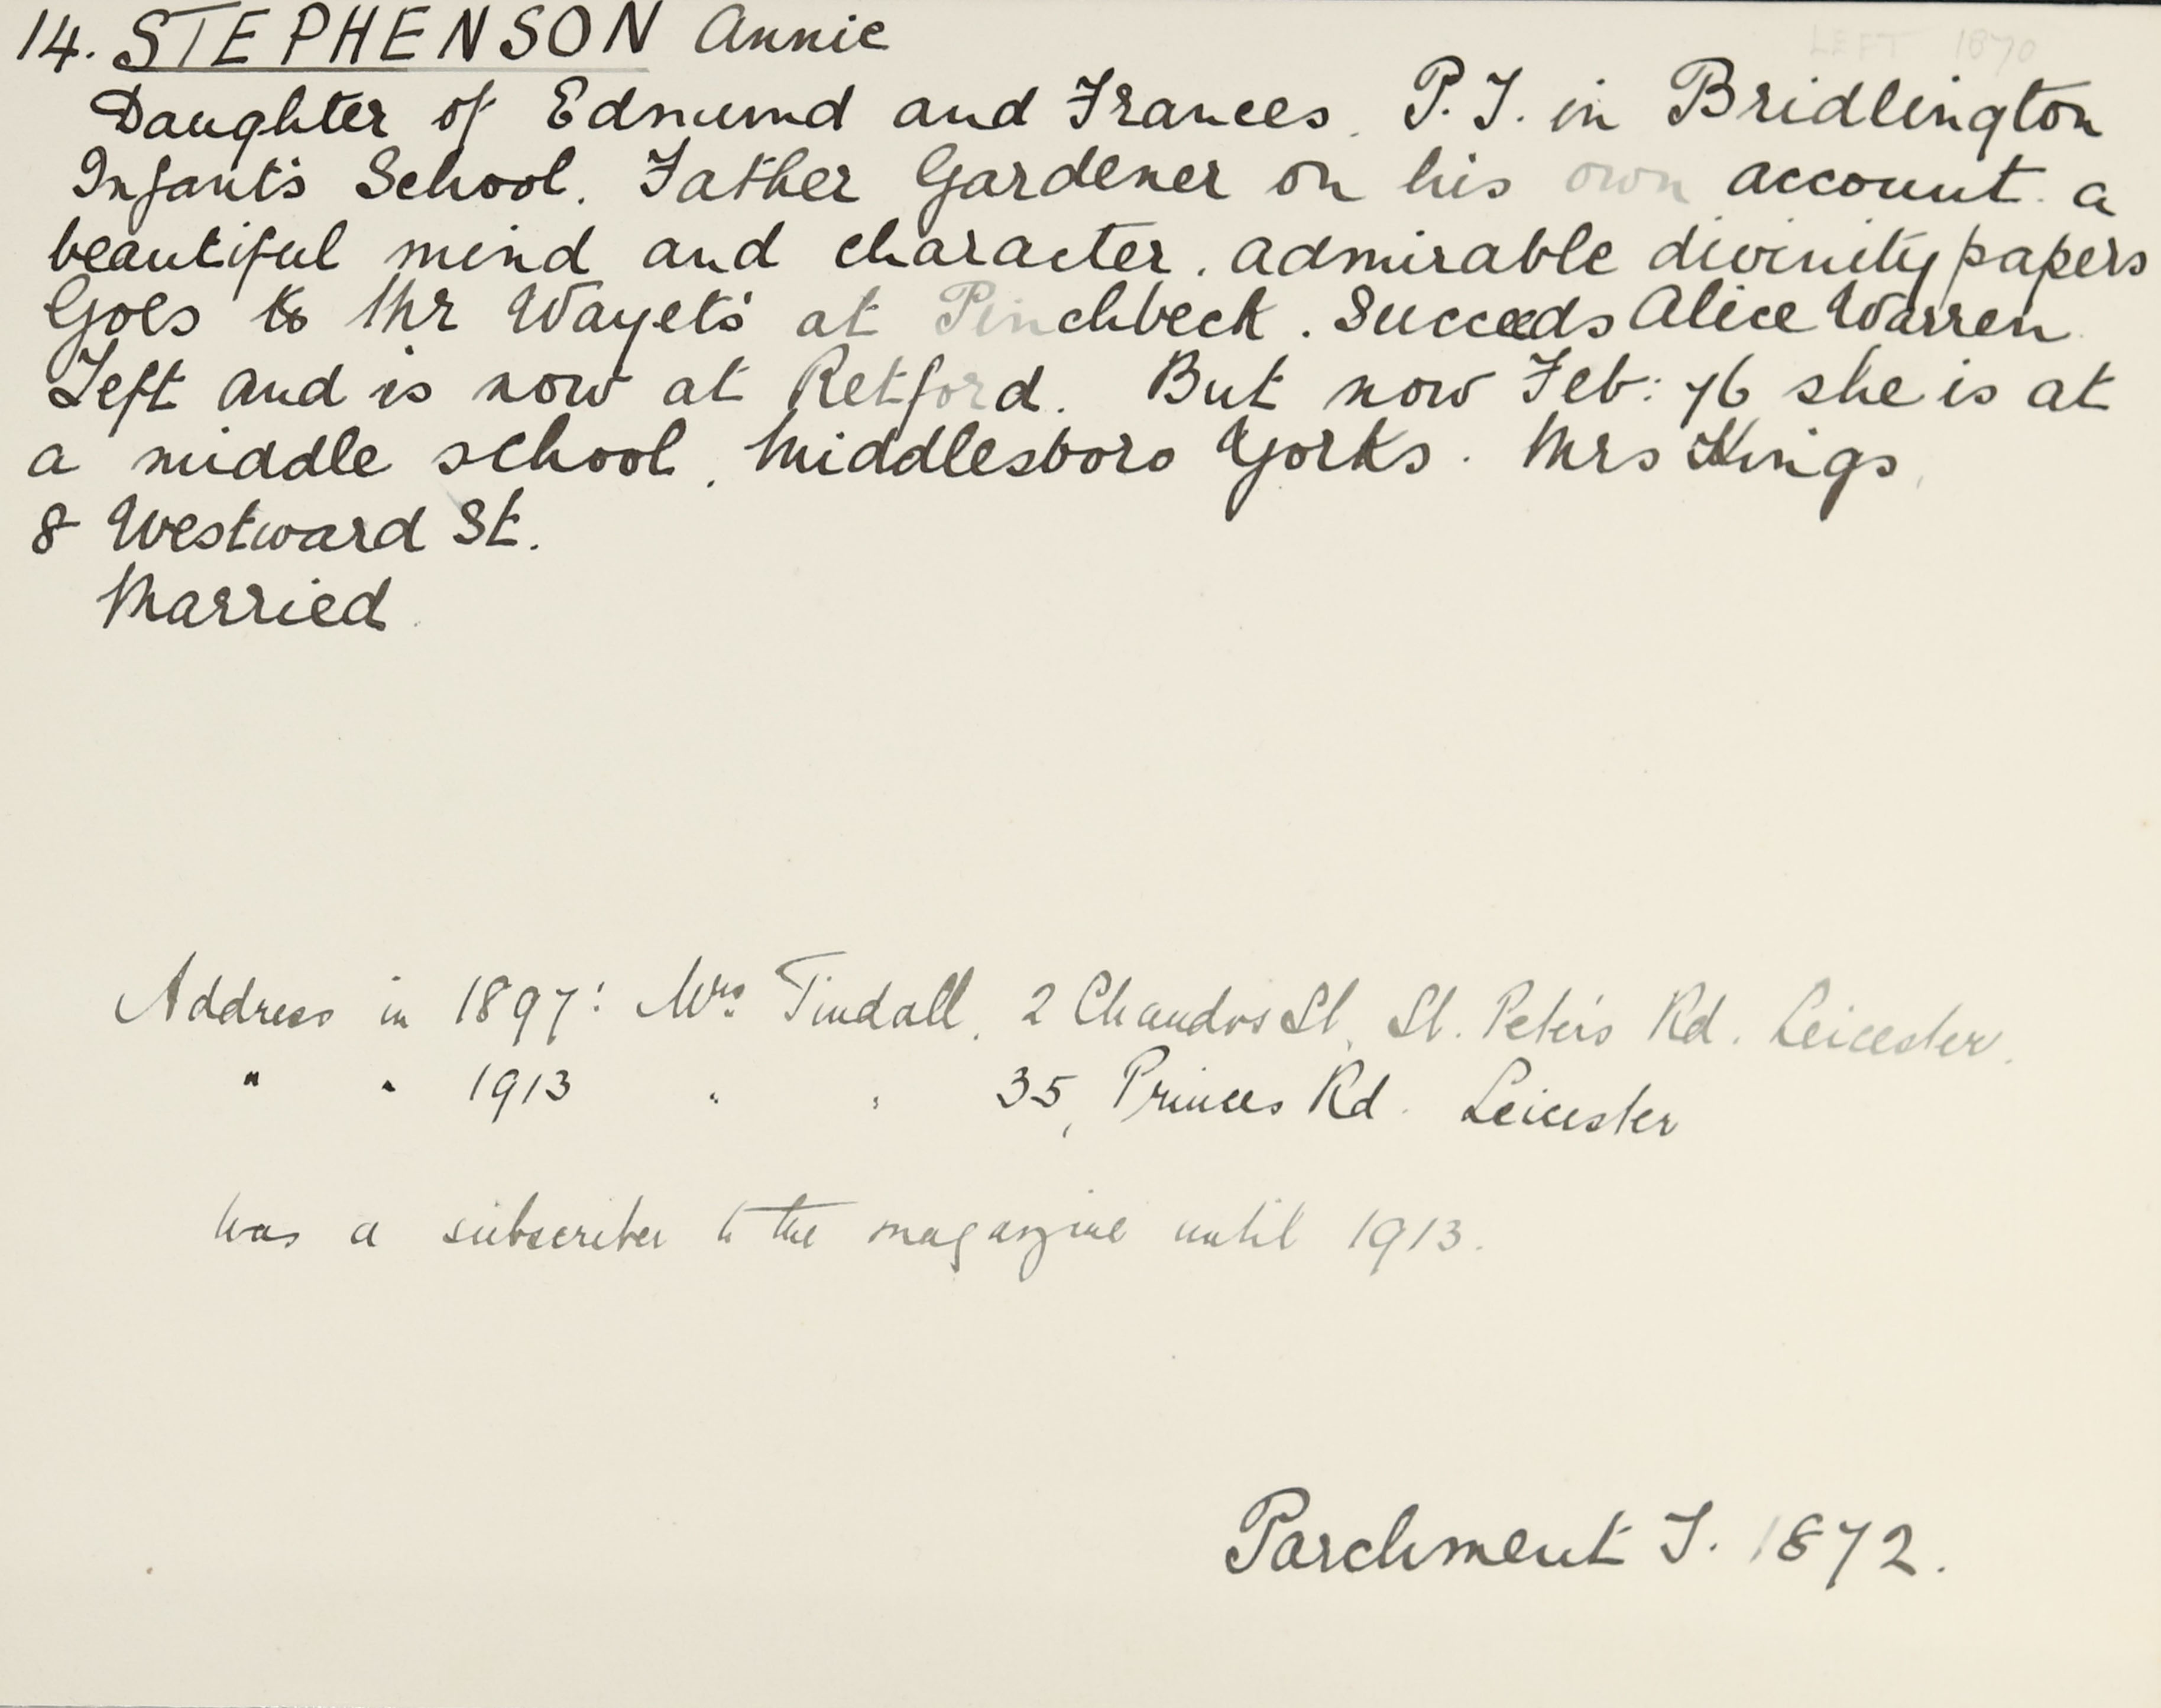 14. STEPHENSON Annie
LEFT 1870
Daughter of Edmund and Frances. P.T. in Bridlington
Infants School. Father Gardener on his own account. a
beautiful mind and character. admirable divinity papers
Goes to Mr Wayet's at Pinchbeck. Succeeds Alice Warren
Left and is now at Retford. But now Feb: 76 she is at
a middle school. Middlesboro Yorks. Mrs Kings,
8 Westward St.
Married.
Address in 1897: Mrs Tindall. 2 Chandos St, St. Peter's Rd. Leicester.
" " 1913 " " 35, Princes Rd. Leicester
was a subscriber to the magazine until 1913.
Parchment T. 1872.